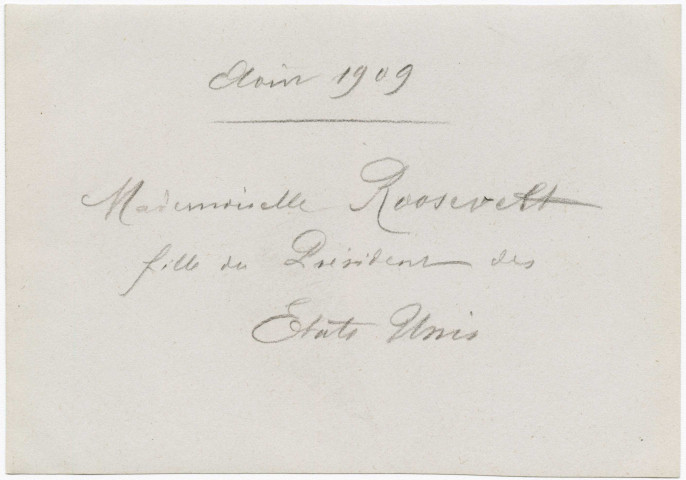 Août 1909
Mademoiselle Roosevelt
fille du Président des
Etats Unis